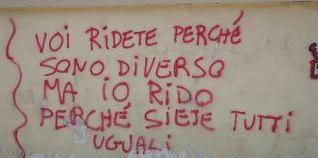 VOI RIDETE PERCHÉ
SONO DIVERSO
MA IO RIDO
PERCHÉ SIETE TUTTI
UGUALI